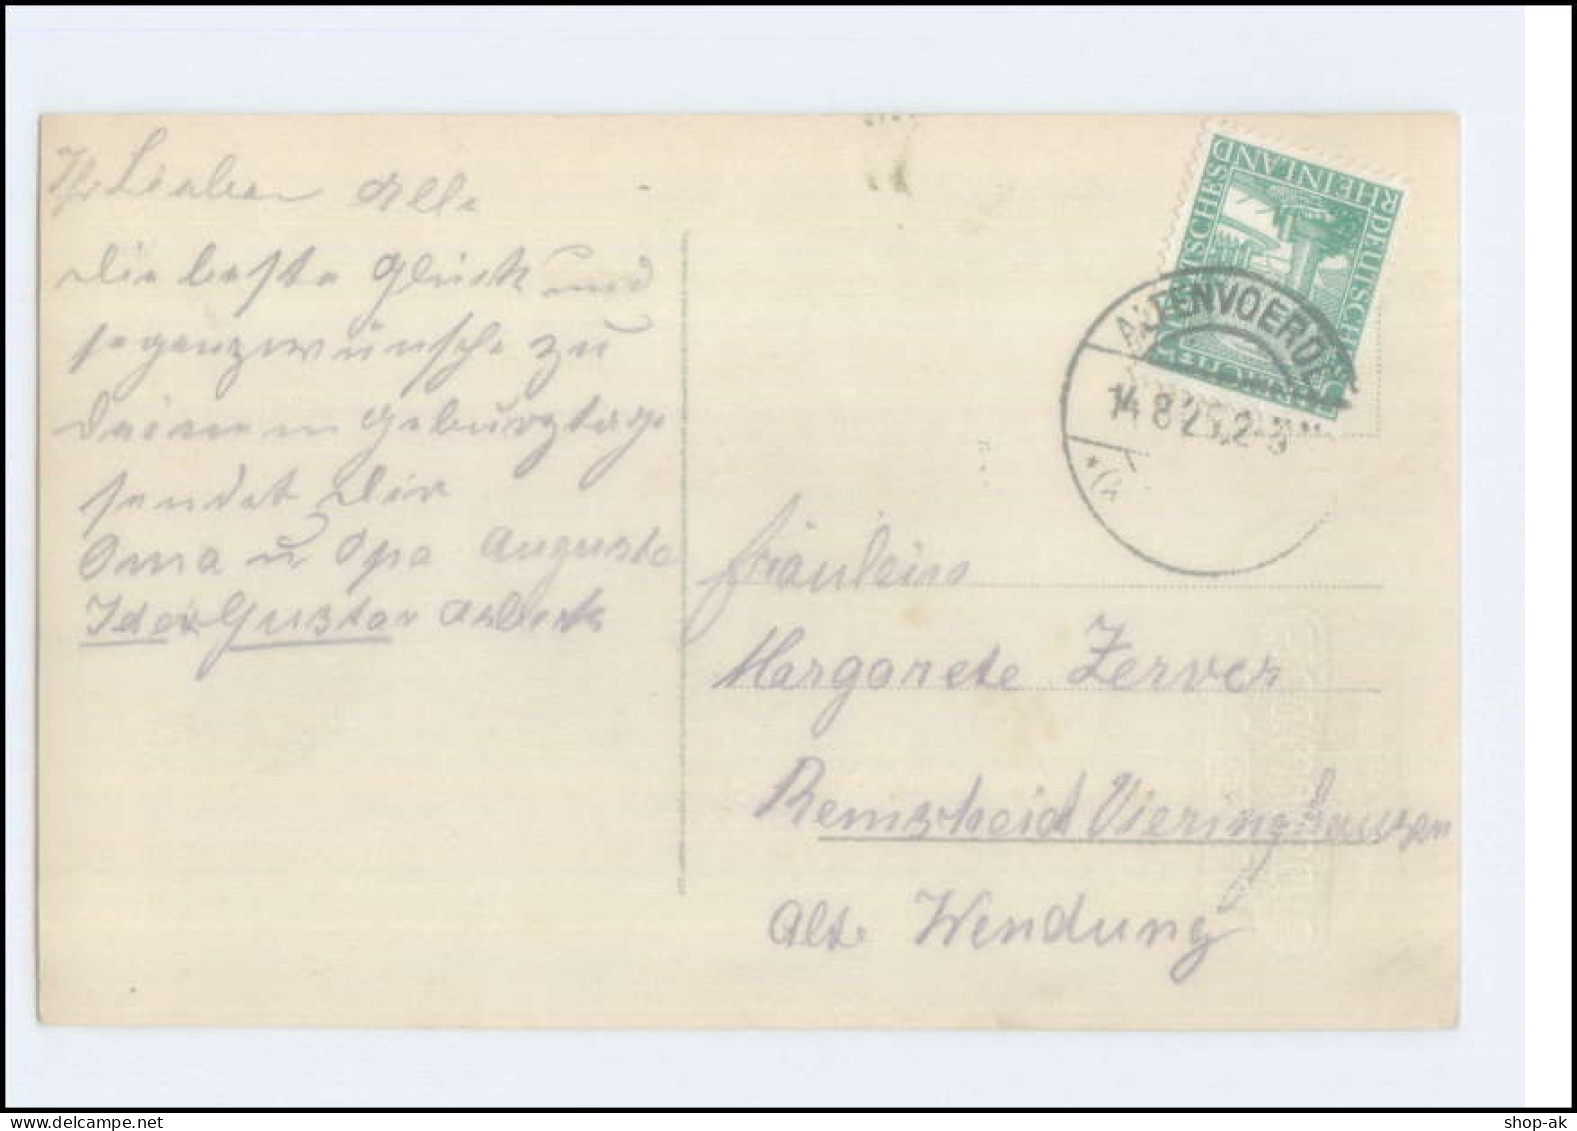 Ihr Lieben Alle
die beste Glück und
segenzwünsche zu
deinem Geburztage
sendet dir
Oma u Opa Auguste
Ida Gustav Asbeck
DEUTSCHES REICH
RHEINLAND
ALTENVOERDE
14.8.25.2-3
Fräulein
Margarete Zerver
Remscheid Vieringhausen
Alte Wendung
shop-ak
delcampe.net